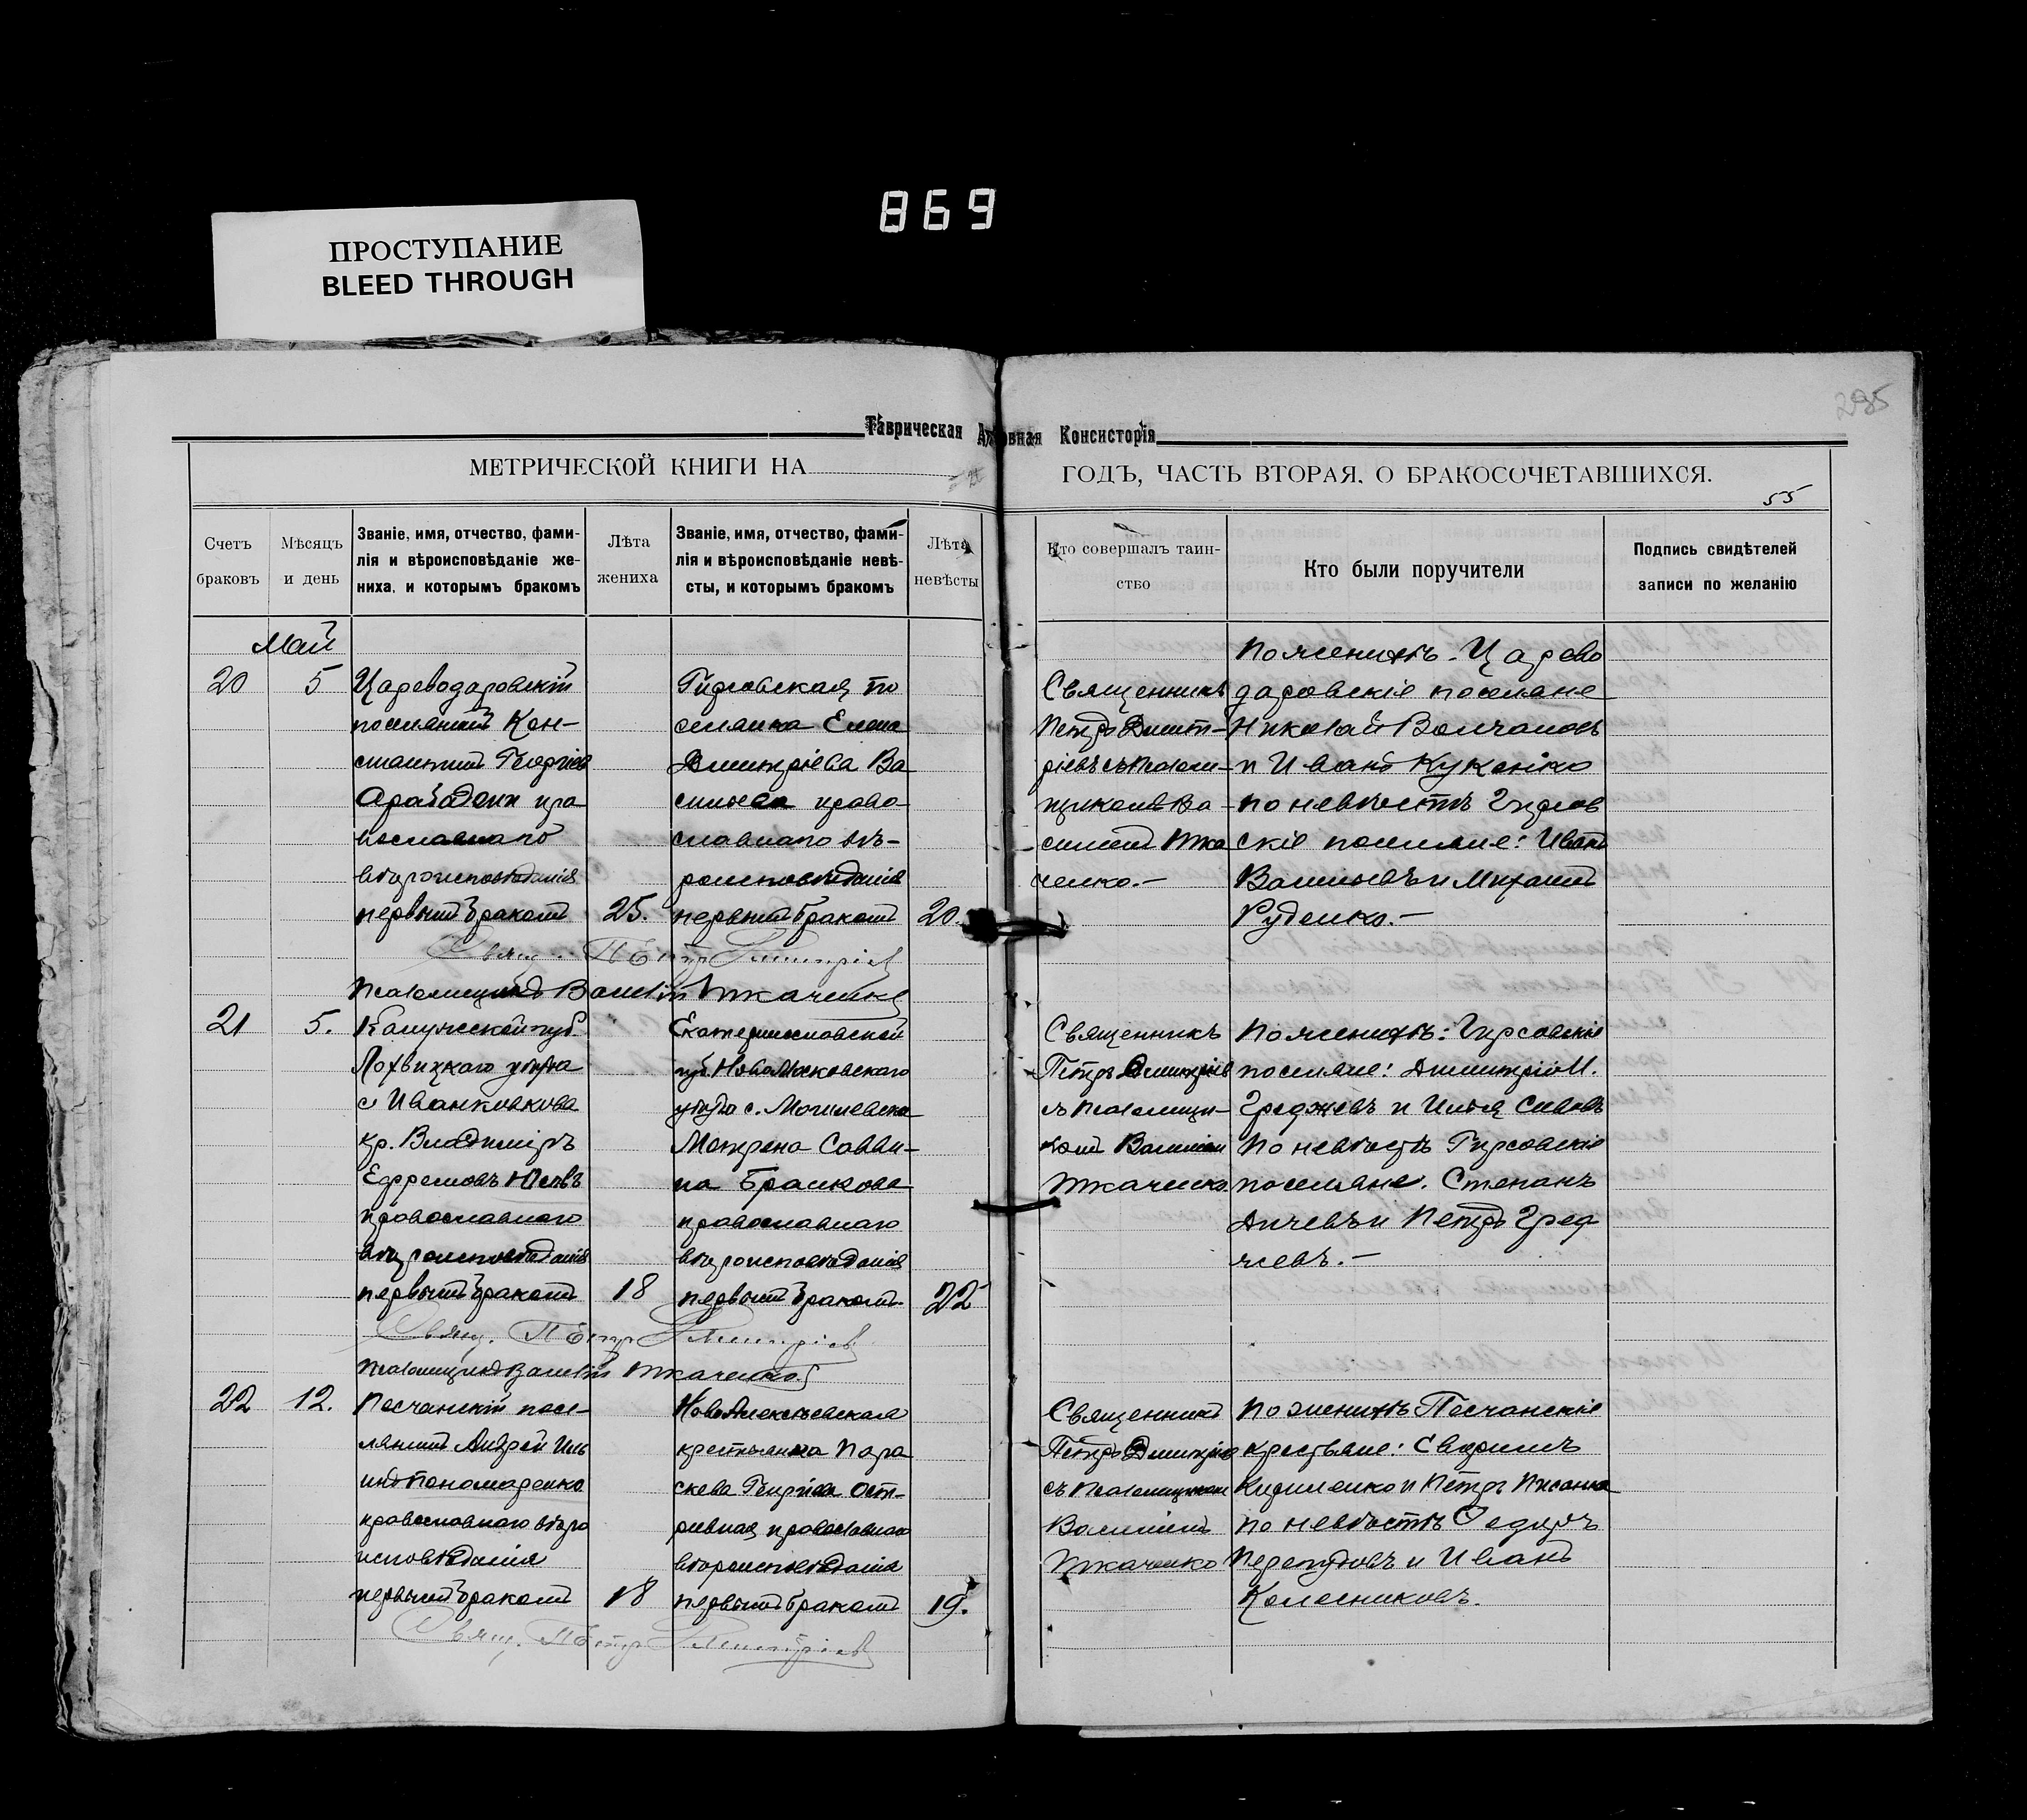 869
ПРОСТУПАНИЕ
BLEED THROUGH
295
Таврическая Духовная Консисторія
МЕТРИЧЕСКОЙ КНИГИ НА
ГОДЪ, ЧАСТЬ ВТОРАЯ, О БРАКОСОЧЕТАВШИХСЯ.
55
Счетъ
браковъ
Мѣсяцъ
и день
Званіе, имя, отчество, фами-
лія и вѣроисповѣданіе же-
ниха, и которымъ бракомъ
Лѣта
жениха
Званіе, имя, отчество, фами-
лія и вѣроисповѣданіе невѣ-
сты, и которымъ бракомъ
Лѣта
невѣсты
Кто совершалъ таин-
ство
Кто были поручители
Подпись свидѣтелей
записи по желанію
Май
20
5
Цареводаровскій
поселянинъ Кон-
стантинъ Георгіев
Арабаджи пра
вославнаго
вѣроисповѣданія
первымъ бракомъ
25.
Гирсовская по
селянка Елена
Димитріева Ва
сильева право-
славнаго вѣ-
роисповѣданія
первымъ бракомъ
20.
Священникъ
Петръ Димит-
ріевъ съ псалом-
щикомъ Ва-
силіемъ Тка
ченко.-
По женихѣ. Царево
даровскіе поселяне
Николай Волчановъ
и Иванъ Кукенко
по невѣстѣ Гирсов
скіе поселяне: Иванъ
Васильевъ и Михаилъ
Руденко.-
Свящ. Петръ Димитріев
Псаломщикъ Василій Ткаченко
21
5.
Калужской губ.
Лохвицкаго уѣзда
с. Иванковкова
кр. Владиміръ
Ефремовъ
православнаго
вѣроисповѣданія
первымъ бракомъ
18
Екатеринославской
губ. НовоМосковскаго
уѣзда с. Могилевска
Матрена Савви-
на Бранкова
православнаго
вѣроисповѣданія
первымъ бракомъ
22
Священникъ
Петръ Димитріев
съ псаломщи-
комъ Василіем
Ткаченко
По женихѣ: Гирсовскіе
поселяне: Димитрій И.
Греджевъ и Илья Савовъ
По невѣстѣ Гирсовскіе
поселяне. Степанъ
Дичевъ и Петръ Гред
жевъ.-
Свящ. Петръ Димитріев
Псаломщикъ Василій Ткаченко
22
12.
Песчанскій посе-
лянинъ Андрей Иль
инъ Пономаренко
православнаго вѣро
исповѣданія
первымъ бракомъ
18
НовоАлексѣевская
крестьянка Пара
скева Георгіева Ост-
ривная православнаго
вѣроисповѣданія
первымъ бракомъ
19.
Священникъ
Петръ Димитріев
съ псаломщикомъ
Василіемъ
Ткаченко
По женихѣ Песчанскіе
крестьяне: Севиринъ
Кириленко и Петръ Писанка
по невѣстѣ Федоръ
и Иванъ
Колесниковъ.
Свящ. Петръ Димитріев